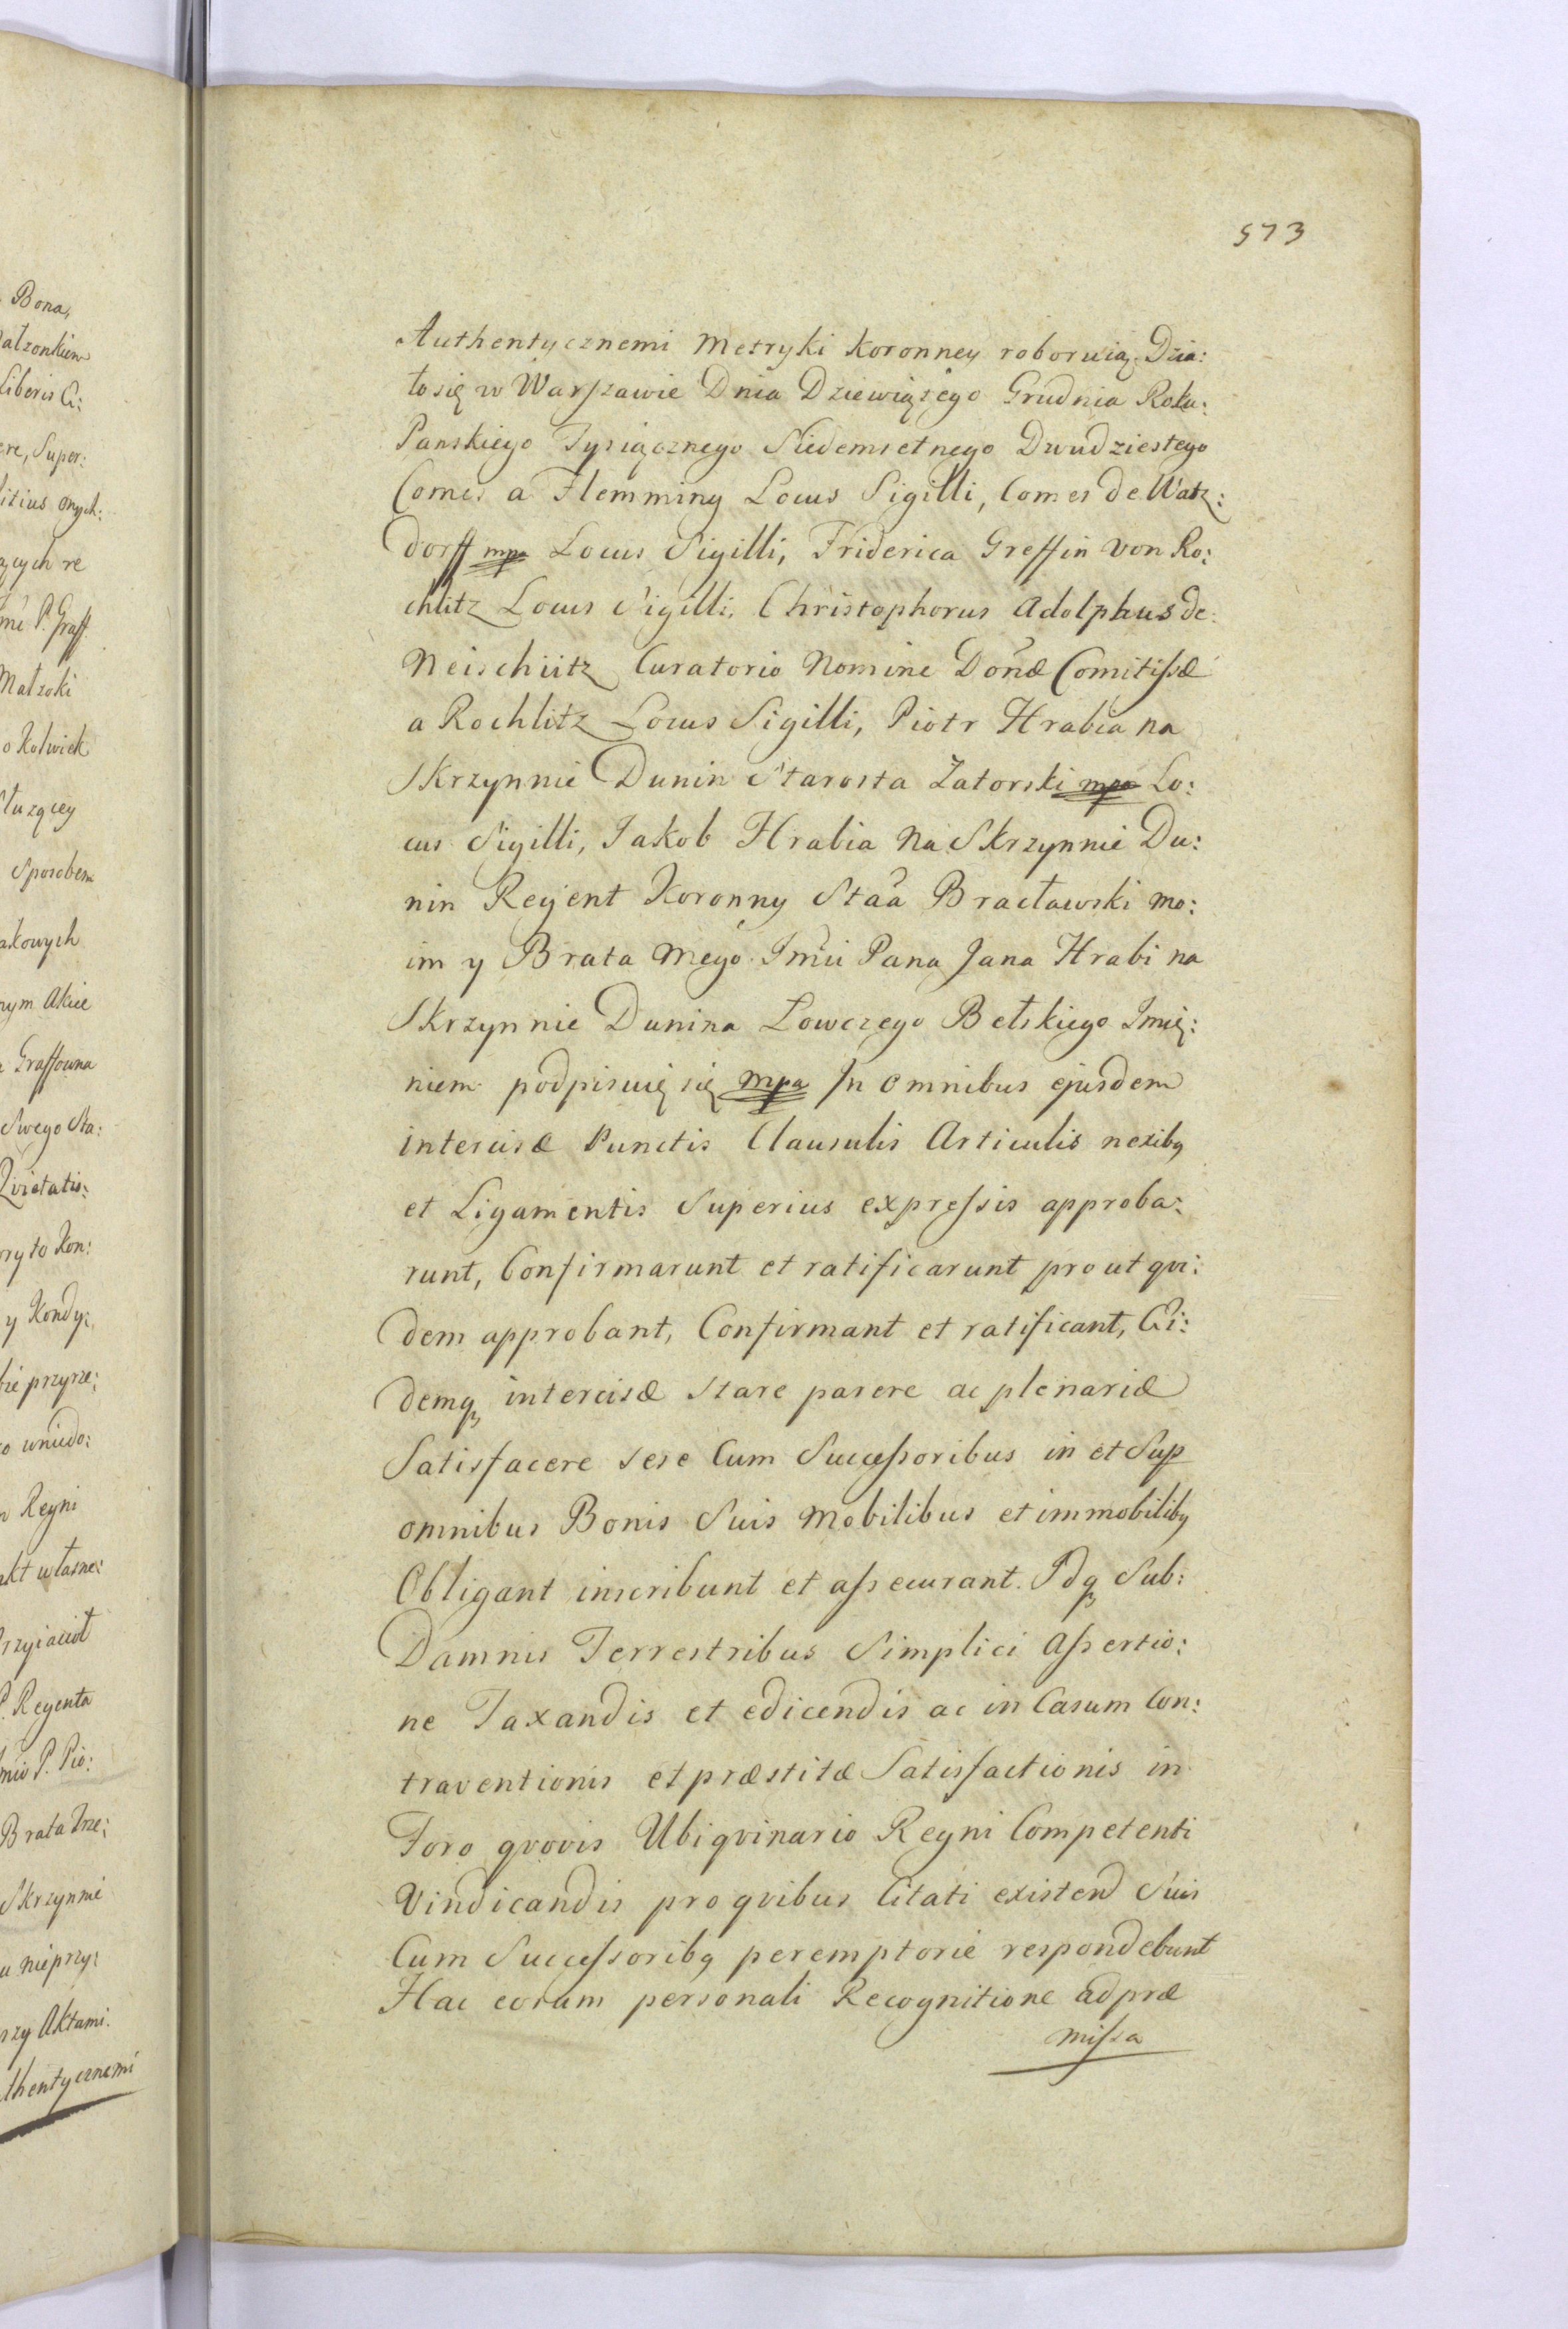 573
Authentycznemi Metryki Koronney roboruią. Dzia:
ło się w Warszawie Dnia Dziewiątego Grudnia Roku:
Panskiego Tysiącznego Siedemsetnego Dwudziestego
Comes a Flemming Locus Sigilli, Comes de Watz:
dorff mpa Locus Sigilli, Friderica Greffin von Ro:
chlitz Locus Sigilli, Christophorus Adolphus de
Neischütz Curatorio Nomine Donæ Comitissæ
a Rochlitz Locus Sigilli, Piotr Hrabia na
Skrzynnie Dunin Starosta Zatorski mpa Lo:
cus Sigilli, Jakob Hrabia na Skrzynnie Du:
nin Regent Koronny Staa Bracławski mo:
im y Brata mego Jmci Pana Jana Hrabi na
Skrzynnie Dunina Łowczego Bełskiego Imię:
niem podpisuię się mpa In omnibus ejusdem
intercisæ Punctis Clausulis Articulis nexibq
et Ligamentis Superius expressis approba:
runt, Confirmarunt et ratificarunt prout qvi:
dem approbant, Confirmant et ratificant, Ei:
demq intercisæ stare parere ac plenariæ
Satisfacere sese Cum Successoribus in et Sup
omnibus Bonis Suis Mobilibus et immobilibq
Obligant inscribunt et assecurant. Idq Sub:
Damnis Terrestribus Simplici Assertio:
ne Taxandis et edicendis ac in Casum Con:
traventionis et præstitæ Satisfactionis in
Foro qvovis Ubiqvinario Regni Competenti
Vindicandis pro qvibus Citati existend Suis
Cum Successoribq peremptorie respondebunt
Hac eorum personali Recognitione ad præ
missa
Bona,
małzonkiem
Liberis
ere, Super:
litius onych:
Graff
o Kolwiek
służącey
Sposobem
takowych
nym Akcie
Graffowna
Swego Sta:
Qvietatis:
y Kondy:
Regni
akt własne:
Przyiacioł
P. Regenta
P. Pio:
Brata
Skrzynnie
nieprzy:
przy Aktami.
thentycznemi